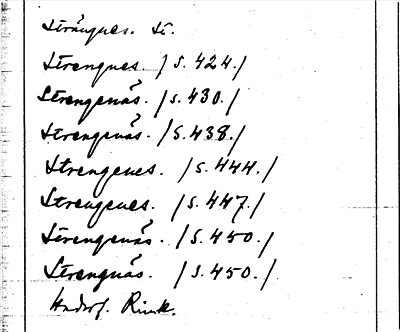 Strängnes. St.
Strengnes. /S. 424./
Strengenäs. /S. 430./
Strengenäs. /S. 438./
Strengenes. /S. 444./
Strengenes. /S. 447./
Strengenäs. /S. 450./
Strengnäs. /S. 450./
Rink.